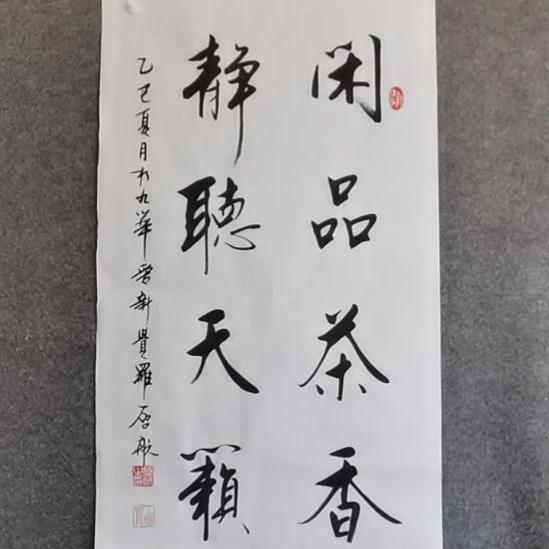 闲品茶香
静聽天籟
乙巳夏月于九華愛新覺羅啓航